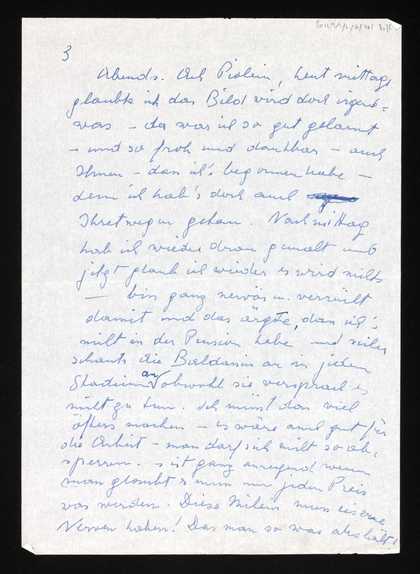 3
Abends. Ach Piolein, heut mittags
glaubte ich das Bild wird doch irgend=
was – da war ich so gut gelaunt
– und so froh und dankbar – auch
Ihnen – dass ich's begonnen habe –
denn ich hab's doch auch
Ihretwegen getan. Nachmittag
hab ich wieder dran gemalt und
jetzt glaub ich wieder es wird nichts
– bin ganz nervös u. verrückt
damit und das ärgste, dass ich's
nicht in der Pension habe und
schaut die Baldassin in jedem
Stadium an obwohl sie versprach es
nicht zu tun. Ich müsst das viel
öfters machen – es wäre auch gut für
die Arbeit – man darf sich nicht so ab-
sperren. s'ist ganz anregend wenn
man glaubt s'muss um jeden Preis
was werden. Diese muss eiserne
Nerven haben! Das man so was aushält!